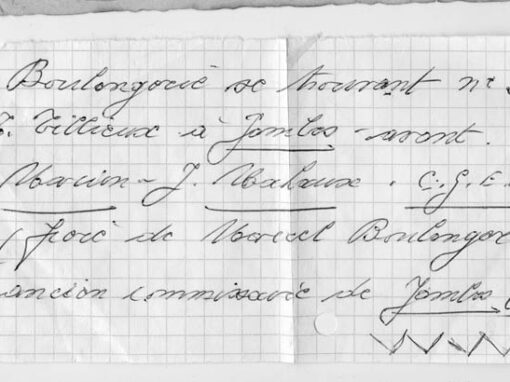 Boulangerie se trouvant n°
J. Tillieux à Jambes - avant.
Marion - J. Malaux . C.G.E.
(frère de Marcel Boulanger
ancien commissaire de Jambes